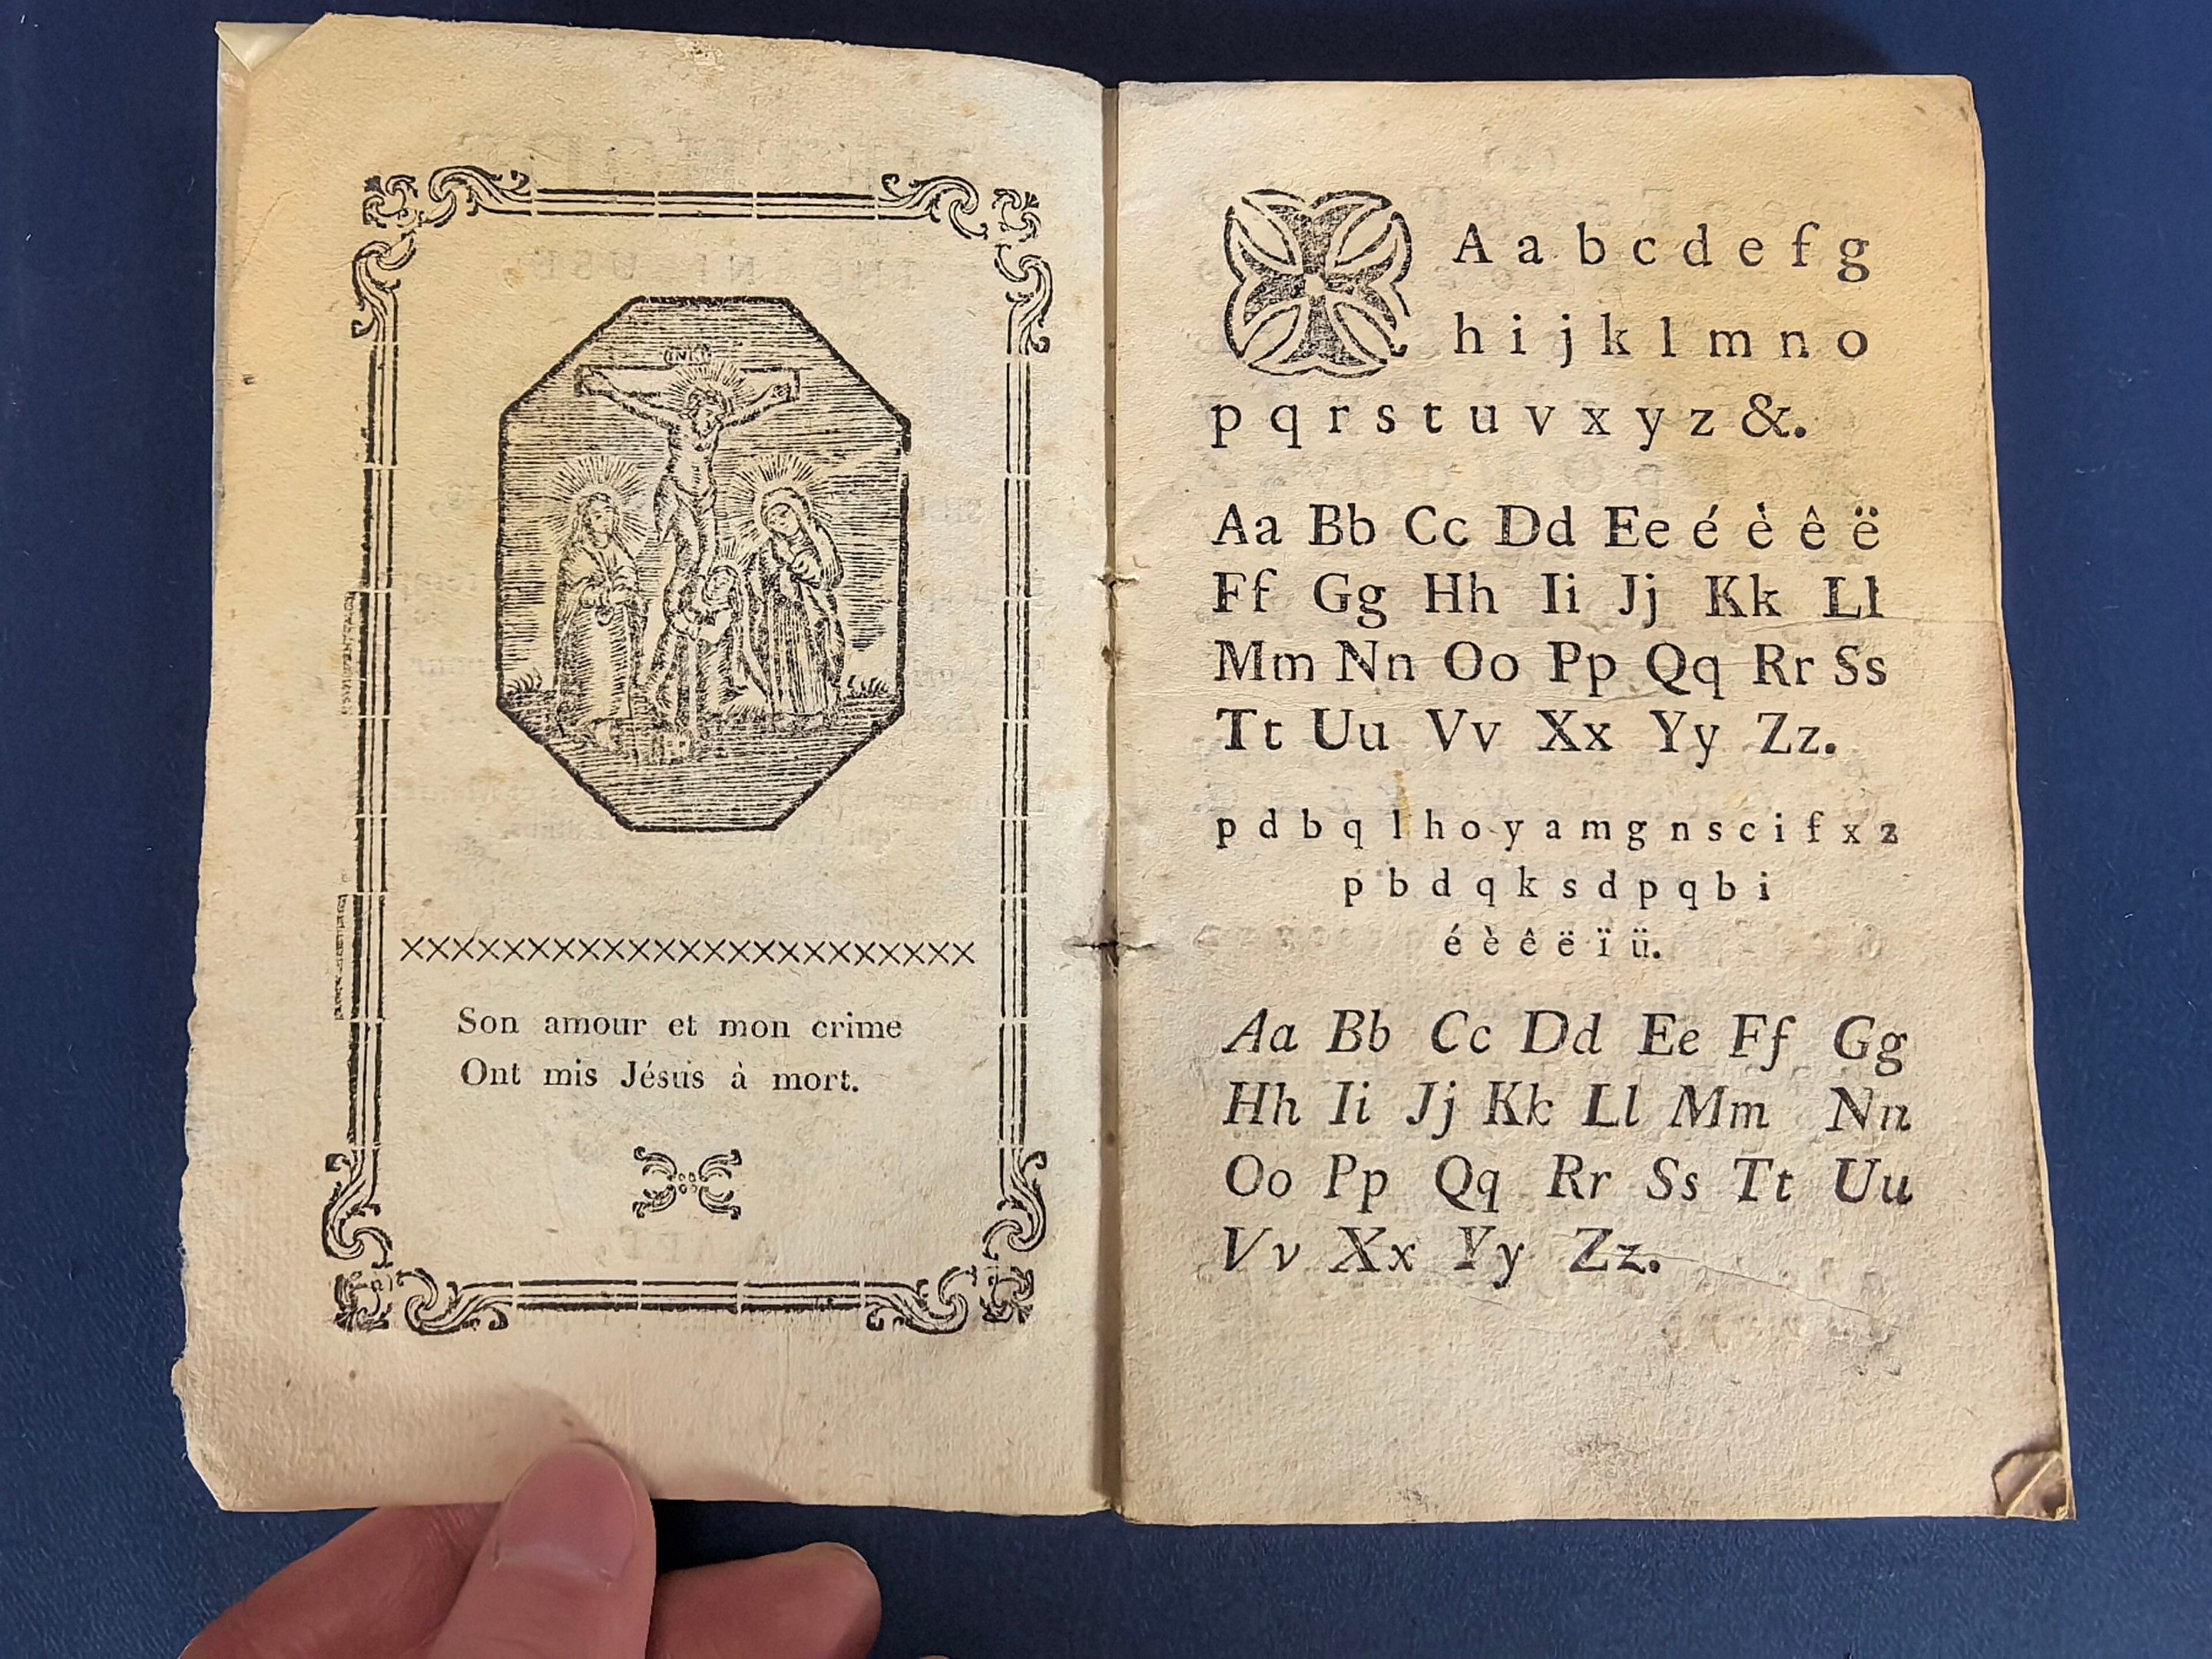 INRI
Son amour et mon crime
Ont mis Jésus à mort.
A a b c d e f g
h i j k l m n o
p q r s t u v x y z &.
Aa Bb Cc Dd Ee é è ê ë
Ff Gg Hh Ii Jj Kk Ll
Mm Nn Oo Pp Qq Rr Ss
Tt Uu Vv Xx Yy Zz.
p d b q l h o y a m g n s c i f x z
p b d q k s d p q b i
é è ê ë ï ü.
Aa Bb Cc Dd Ee Ff Gg
Hh Ii Jj Kk Ll Mm Nn
Oo Pp Qq Rr Ss Tt Uu
Vv Xx Yy Zz.